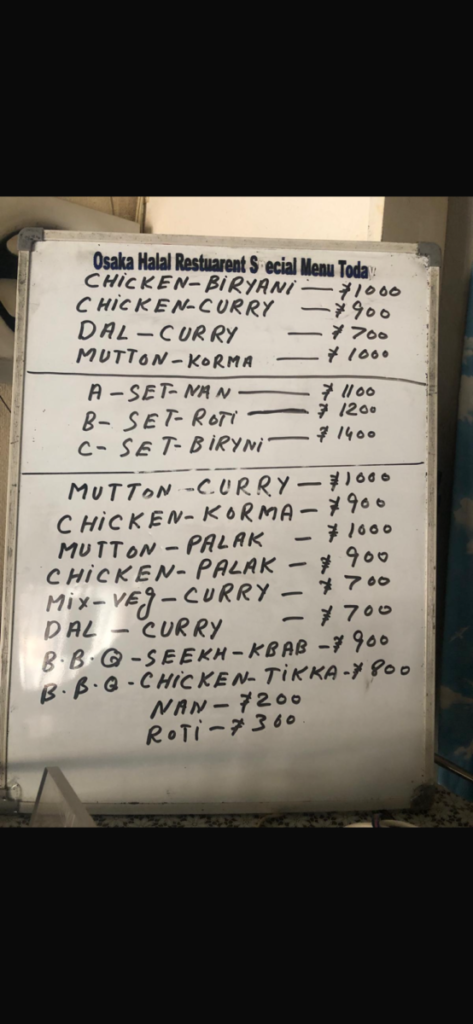 Osaka Halal Restuarent S ecial Menu Today
CHiCKEN-BiRYANi — ¥1000
CHiCKEN-CURRY — ¥900
DAL - CURRY — ¥700
MUTTON-KORMA — ¥1000
A-SET-NAN — ¥1100
B- SET-ROTi — ¥1200
C- SET-BiRYNi — ¥1400
MUTTON -CURRY - ¥1000
CHiCKEN-KORMA - ¥900
MUTTON - PALAK - ¥1000
CHiCKEN- PALAK - ¥900
Mix-VEg-CURRY - ¥700
DAL - CURRY - ¥700
B.B.Q -SEEKH-KBAB -¥900
B.B.Q-CHiCKEN-TiKKA-¥800
NAN - ¥200
ROTi - ¥300